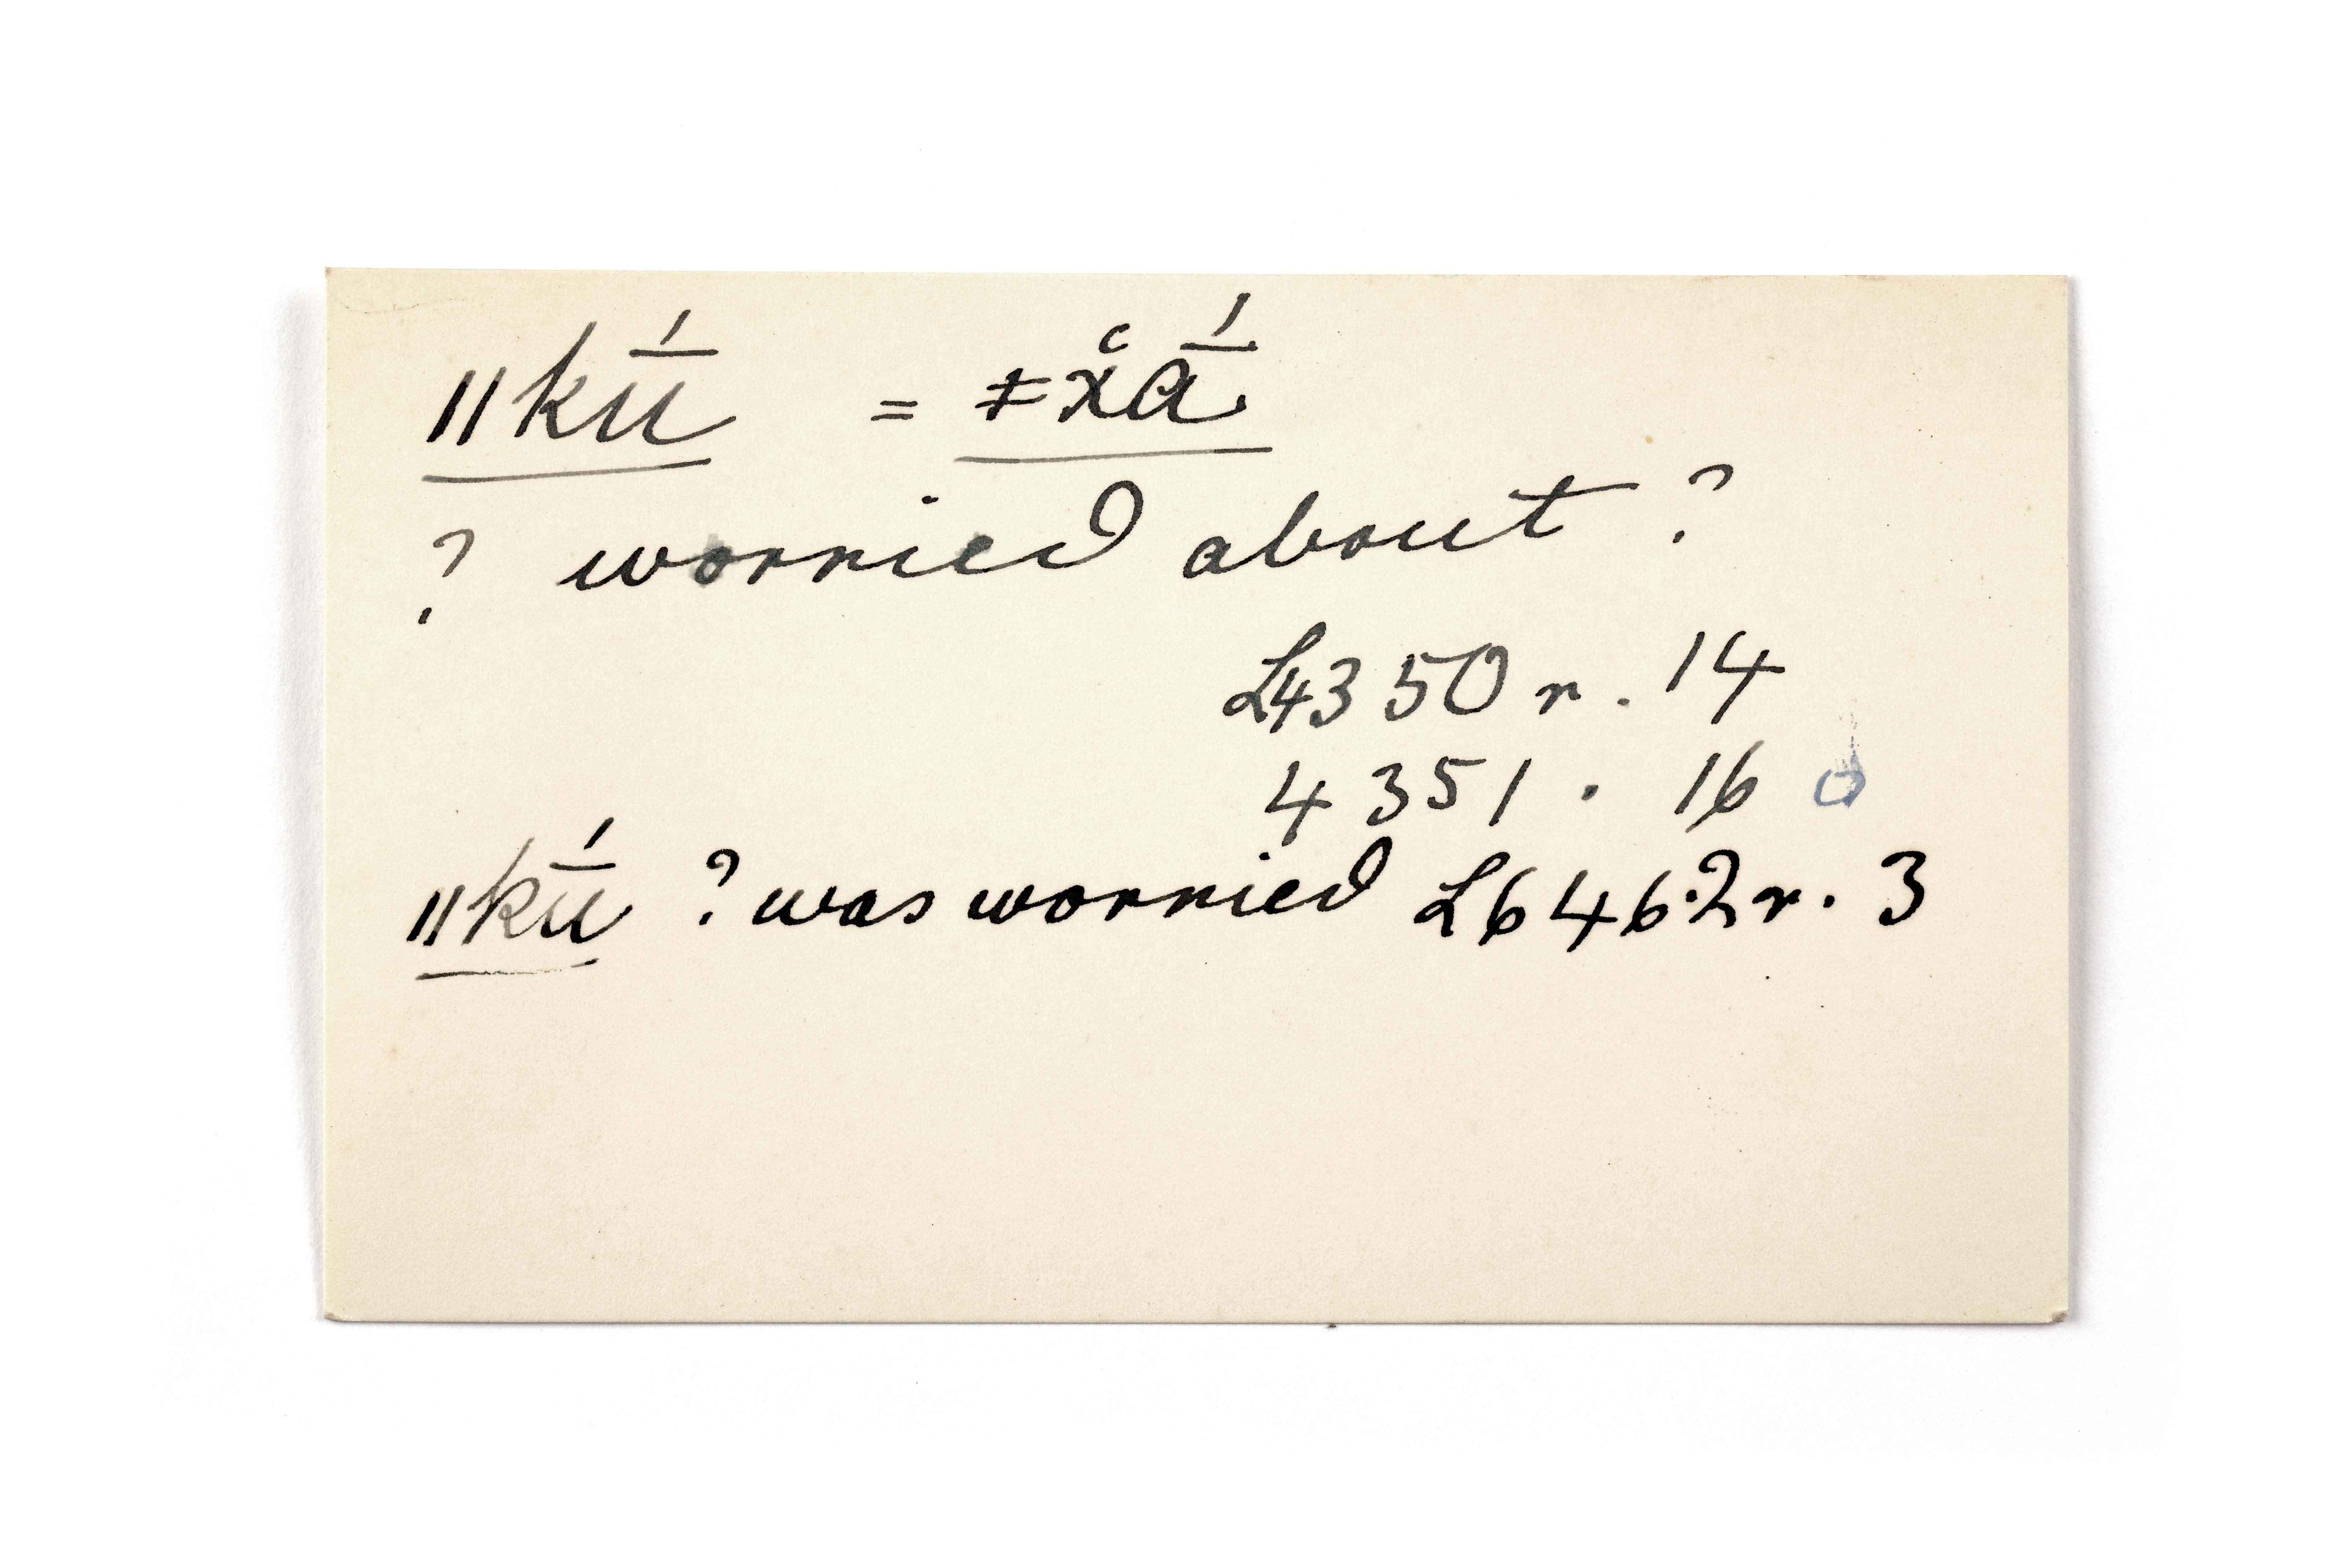 ǁkū́ = ǂx̆ā́
? worried about ?
L4350 r. 14
4351 . 16
ǁkū́ ? was worried L6462 r. 3